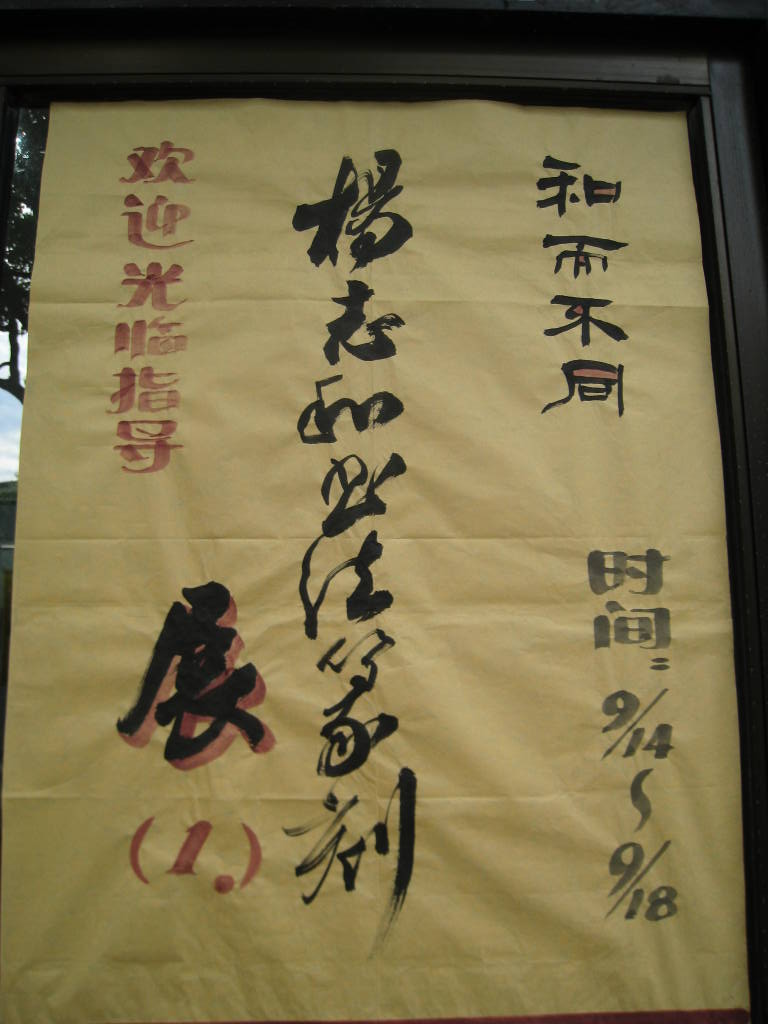 和而不同
时间：9/14～9/18
楊志和书法篆刻
展
(1.)
欢迎光临指导